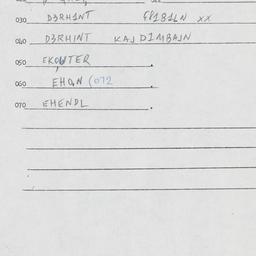 030 D3RHINT 681B1LN XX
040 D3RHINT KAJ DIMBAJN
050 EKOUTER
060 EHON (072
070 EHENDL